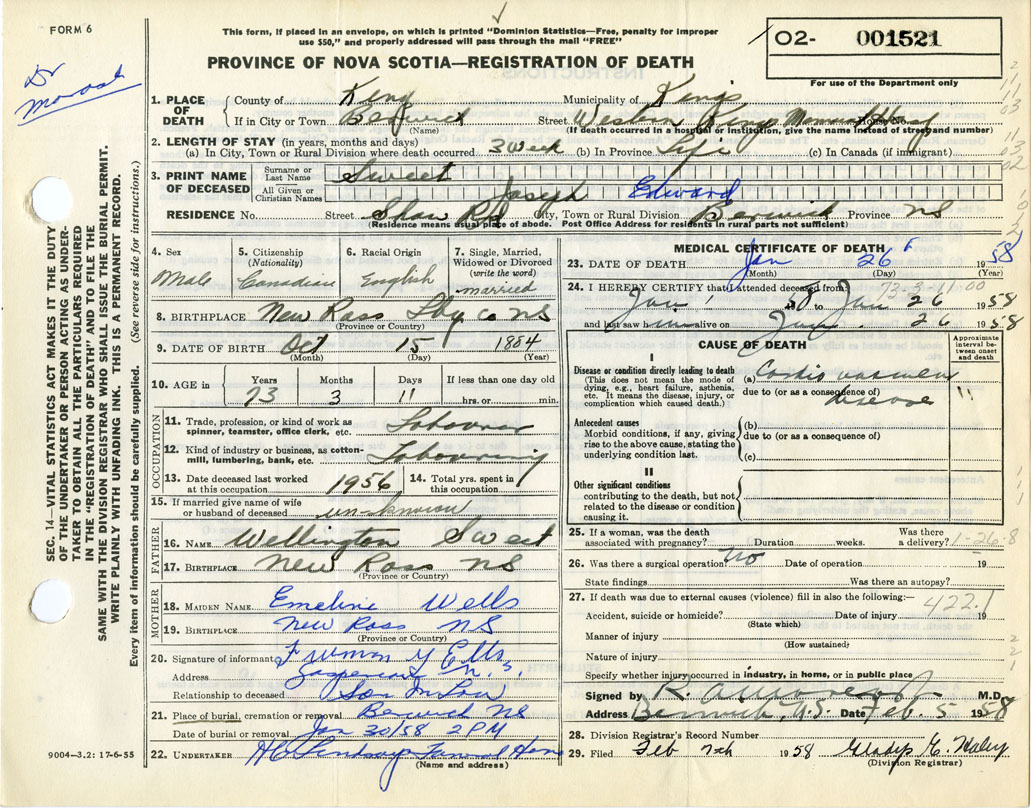 FORM 6
This form, if placed in an envelope, on which is printed "Dominion Statistics—Free, penalty for improper
use $50," and properly addressed will pass through the mail "FREE"
PROVINCE OF NOVA SCOTIA—REGISTRATION OF DEATH
02- 001521
For use of the Department only
Dr
1. PLACE OF DEATH { County of King Municipality of Kings
If in City or Town Berwick Street Western Kings Memorial House No.
(Name) (If death occurred in a hospital or institution, give the name instead of street and number)
2. LENGTH OF STAY (in years, months and days)
(a) In City, Town or Rural Division where death occurred 3 Week (b) In Province Life (c) In Canada (if immigrant)
3. PRINT NAME OF DECEASED { Surname or Last Name Sweet
All Given or Christian Names Joseph Edward
RESIDENCE No. Street Shaw Rd City, Town or Rural Division Berwick Province NS
(Residence means usual place of abode. Post Office Address for residents in rural parts not sufficient)
SEC. 14—VITAL STATISTICS ACT MAKES IT THE DUTY
OF THE UNDERTAKER OR PERSON ACTING AS UNDER-
TAKER TO OBTAIN ALL THE PARTICULARS REQUIRED
IN THE "REGISTRATION OF DEATH" AND TO FILE THE
SAME WITH THE DIVISION REGISTRAR WHO SHALL ISSUE THE BURIAL PERMIT.
WRITE PLAINLY WITH UNFADING INK. THIS IS A PERMANENT RECORD.
Every item of information should be carefully supplied. (See reverse side for instructions.)
4. Sex 5. Citizenship 6. Racial Origin 7. Single, Married,
(Nationality) Widowed or Divorced
(write the word)
Male Canadian English married
8. BIRTHPLACE New Ross NS
(Province or Country)
9. DATE OF BIRTH Oct 15 1884
(Month) (Day) (Year)
10. AGE in Years Months Days If less than one day old
73 3 11 hrs. or min.
OCCUPATION
11. Trade, profession, or kind of work as
spinner, teamster, office clerk, etc. Labourer
12. Kind of industry or business, as cotton-
mill, lumbering, bank, etc. Labouring
13. Date deceased last worked at this occupation 1956 14. Total yrs. spent in this occupation
15. If married give name of wife
or husband of deceased unknown
FATHER
16. NAME Wellington Sweet
17. BIRTHPLACE New Ross NS
(Province or Country)
MOTHER
18. MAIDEN NAME Emeline Wells
19. BIRTHPLACE New Ross NS
(Province or Country)
20. Signature of informant
Address Gaspereau N.S.
Relationship to deceased Son In Law
21. Place of burial, cremation or removal Berwick NS
Date of burial or removal Jan 30/58 2 PM
22. UNDERTAKER Funeral Home
(Name and address)
9004—3.2: 17-6-55
MEDICAL CERTIFICATE OF DEATH
23. DATE OF DEATH Jan 26 1958
(Month) (Day) (Year)
73-3-11 00
24. I HEREBY CERTIFY that I attended deceased from
Jan 1 1958 to Jan 26 1958
and last saw him alive on Jan. 26 1958
CAUSE OF DEATH
Approximate interval between onset and death
I
Disease or condition directly leading to death
(This does not mean the mode of
dying, e.g., heart failure, asthenia,
etc. It means the disease, injury, or
complication which caused death.)
(a)
due to (or as a consequence of) disease
Antecedent causes
Morbid conditions, if any, giving
rise to the above cause, stating the
underlying condition last.
(b)
due to (or as a consequence of)
(c)
II
Other significant conditions
contributing to the death, but not
related to the disease or condition
causing it.
25. If a woman, was the death Was there
associated with pregnancy? Duration weeks. a delivery?
1-26-8
26. Was there a surgical operation? No Date of operation 19
State findings Was there an autopsy?
27. If death was due to external causes (violence) fill in also the following:—
422.1
Accident, suicide or homicide? Date of injury 19
(State which)
Manner of injury
(How sustained)
Nature of injury
Specify whether injury occurred in industry, in home, or in public place
Signed by M.D.
Address Berwick, N.S. Date Feb. 5 1958
28. Division Registrar's Record Number
29. Filed Feb 7th 1958 Gladys E. Haley
(Division Registrar)